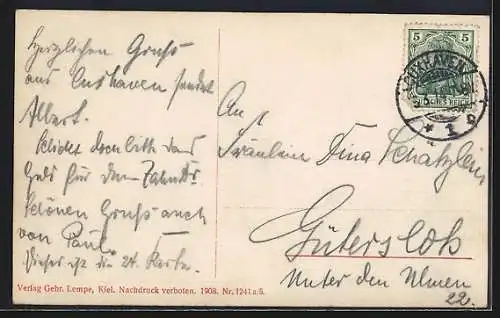 Herzlichen Gruß
aus Cuxhaven sendet
Albert.
Schickt doch bitte das
Geld für den Zahnarzt
Schönen Gruß auch
von Paul.
Dieses ist die 24. Karte.
Verlag Gebr. Lempe, Kiel. Nachdruck verboten. 1908. Nr. 1241a/5.
5 5
CUXHAVEN
* 1
An
Fräulein Dina Schatzlein
Gütersloh
Unter den Ulmen
22.